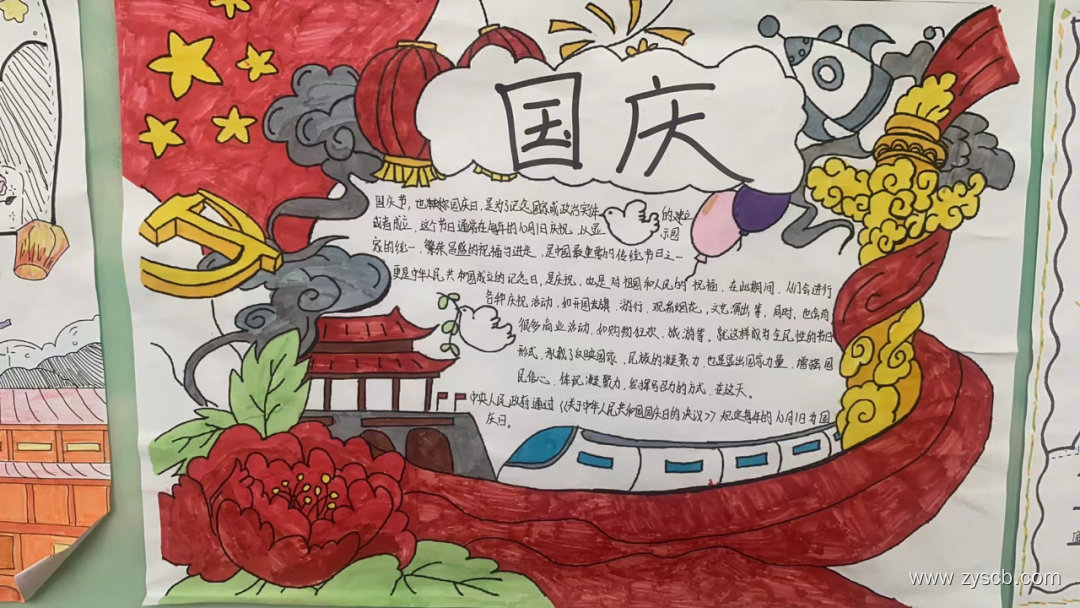 国庆
国庆节，也称国庆日，是为了纪念国家或政治实体的建立
或者成立，这个节日通常在每年的10月1日庆祝，以显示国
家的统一、繁荣昌盛的祝福与进步，是中国最重要的传统节日之一
更是中华人民共和国成立的纪念日，是庆祝，也是对祖国和人民的祝福，在此期间，人们会进行
各种庆祝活动，如开国升旗、游行、观看烟花，文艺演出等，同时，也会有
很多商业活动，如购物狂欢、旅游等，就这样成为全民性的节日
形式，承载了反映国家、民族的凝聚力，也显出国家力量，增强国
民信心，体现凝聚力，发挥号召力的方式，在这天。
中央人民政府通过《《关于中华人民共和国国庆日的决议》》规定每年的10月1日为国
庆日。
www.zyscb.com